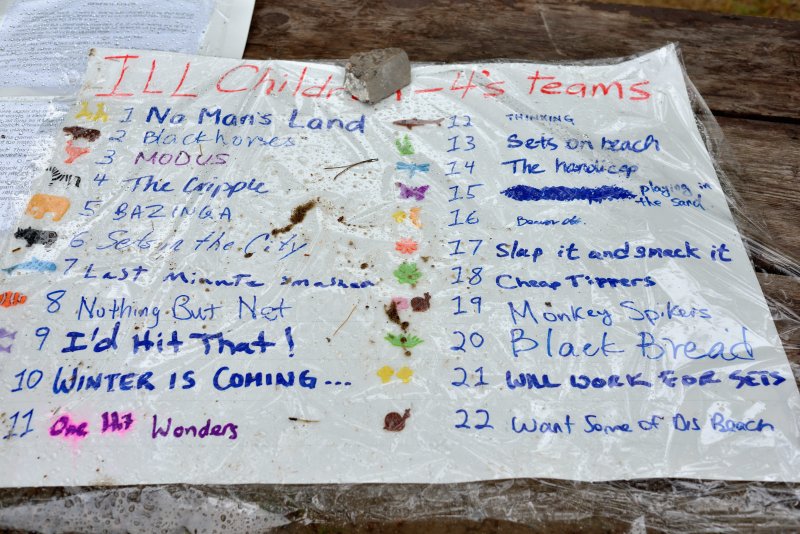 ILL Children - 4's teams
1 No Man's Land
2 Blackhorses
3 MODUS
4 The Cripple
5 BAZINGA
6 Sets in the City
7 Last Minute
8 Nothing But Net
9 I'd Hit That!
10 WINTER IS COMING...
11 One Hit Wonders
12 THINKING
13 Sets on beach
14 The handicap
15 playing in
the sand
16
17 Slap it and smack it
18 Cheap Tippers
19 Monkey Spikers
20 Black Bread
21 WILL WORK FOR SETS
22 Want Some of Dis Beach